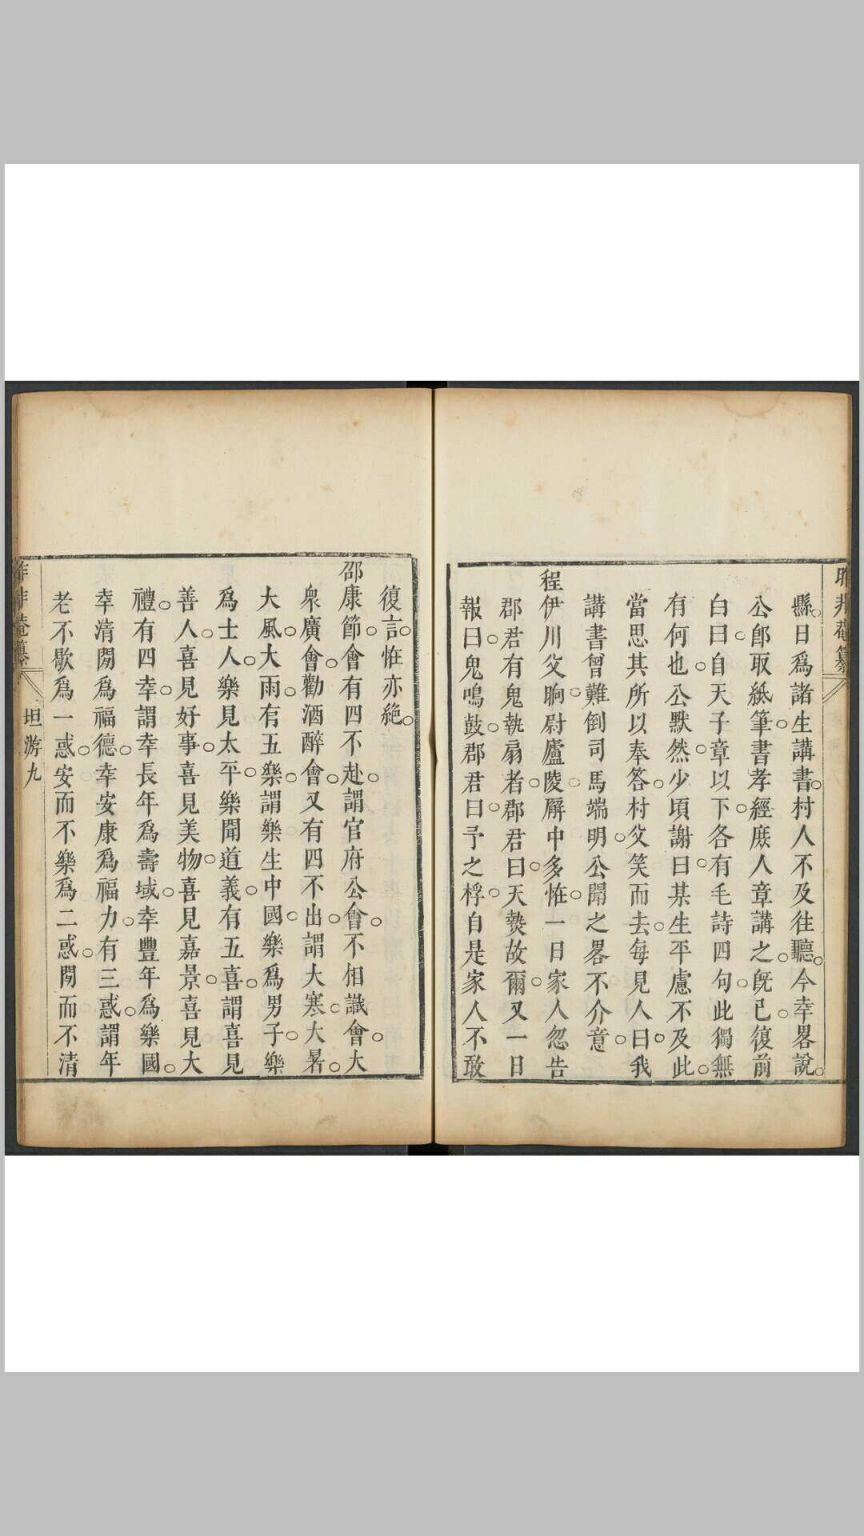 縣日爲諸生講書村人不及往聽今幸畧説
公卽取紙筆書孝經庶人章講之旣已復前
白曰自天子章以下各有毛詩四句此獨無
有何也公默然少頃謝曰某生平慮不及此
當思其所以奉答村父笑而去每見人曰我
講書曾難倒司馬端明公聞之畧不介意
程伊川父晌尉廬陵廨中多恠一日家人忽告
郡君有鬼執扇者郡君曰天𤍠故爾又一日
報曰鬼鳴鼓郡君曰予之桴自是家人不敢
復言恠亦絶
邵康節會有四不赴謂官府公會不相識會大
衆廣會勸酒醉會又有四不出謂大寒大暑
大風大雨有五樂謂樂生中國樂爲男子樂
爲士人樂見太平樂聞道義有五喜謂喜見
善人喜見好事喜見美物喜見嘉景喜見大
禮有四幸謂幸長年爲壽域幸豐年爲樂國
幸清閒爲福德幸安康爲福力有三惑謂年
老不歇爲一惑安而不樂爲二惑閒而不清
昨非菴纂
坦游九